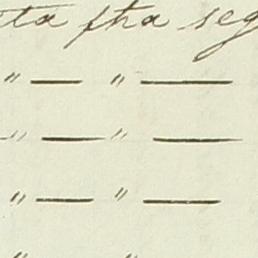 ta fha seg
" — " —
" — " —
" — " —
" "